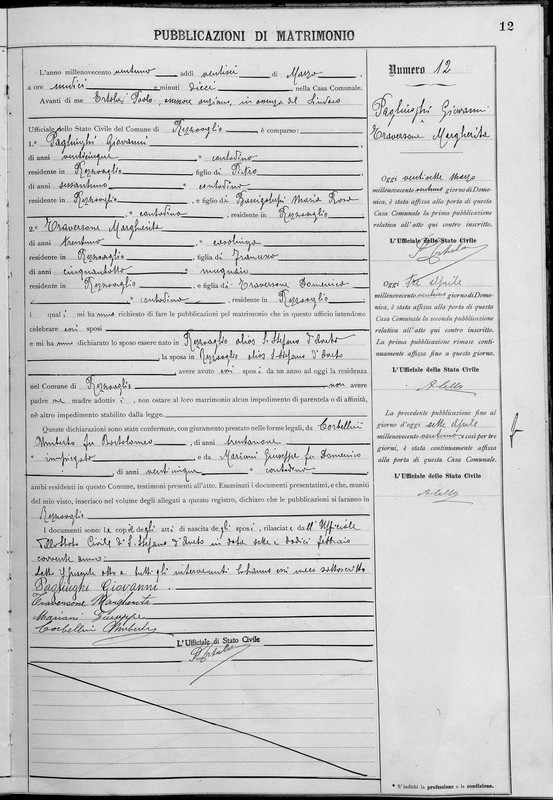 12
PUBBLICAZIONI DI MATRIMONIO
L'anno millenovecento ventuno, addì ventisei di Marzo
a ore undici e minuti dieci, nella Casa Comunale.
Avanti di me Paolo, assessore anziano, in assenza del Sindaco
Ufficiale dello Stato Civile del Comune di Rezzoaglio è comparso:
1° Pagliughi Giovanni
di anni venticinque * contadino
residente in Rezzoaglio, figlio di Pietro
di anni sessantuno * contadino,
residente in Rezzoaglio, e figlio di Maria Rosa
* contadina, residente in Rezzoaglio;
2° Traversone Margherita
di anni trentuno * casalinga
residente in Rezzoaglio, figlia di Francesco
di anni cinquantotto * mugnaio
residente in Rezzoaglio e figlia di Traversone Domenica
* contadina, residente in Rezzoaglio,
i quali mi hanno richiesto di fare le pubblicazioni pel matrimonio che in questo ufficio intendono
celebrare essi sposi
e mi hanno dichiarato lo sposo essere nato in Rezzoaglio alias S. Stefano d'Aveto
la sposa in Rezzoaglio alias S. Stefano d'Aveto
avere avuto essi sposi da un anno ad oggi la residenza
nel Comune di Rezzoaglio non avere
padre nè madre adottivi, non ostare al loro matrimonio alcun impedimento di parentela o di affinità,
nè altro impedimento stabilito dalla legge.
Queste dichiarazioni sono state confermate, con giuramento prestato nelle forme legali, da Corbellini
Umberto fu Bartolomeo, di anni trentanove
* impiegato e da Mariani Giuseppe fu Domenico
di anni ventinque * contadino
ambi residenti in questo Comune, testimoni presenti all'atto. Esaminati i documenti presentatimi, e che, muniti
del mio visto, inserisco nel volume degli allegati a questo registro, dichiaro che le pubblicazioni si faranno in
Rezzoaglio
I documenti sono: le copie degli atti di nascita degli sposi, rilasciate dall'Ufficiale
dello Stato Civile di S. Stefano d'Aveto in data sette e dodici febbraio
corrente anno.
Letto il presente atto a tutti gli intervenuti essi meco sottoscritto
Pagliughi Giovanni.
Traversone Margherita
Mariani Giuseppe
Corbellini Umberto
L'Ufficiale di Stato Civile
Numero 12
Pagliughi Giovanni
Traversone Margherita
Oggi ventisette marzo
millenovecento ventuno giorno di Dome-
nica, è stata affissa alla porta di questa
Casa Comunale la prima pubblicazione
relativa all'atto qui contro inscritto.
L'Ufficiale dello Stato Civile
Oggi tre Aprile
millenovecento ventuno giorno di Dome-
nica, è stata affissa alla porta di questa
Casa Comunale la seconda pubblicazione
relativa all'atto qui contro inscritto.
La prima pubblicazione rimase conti-
nuamente affissa fino a questo giorno.
L'Ufficiale dello Stato Civile
La precedente pubblicazione fino al
giorno d'oggi sette Aprile
millenovecento ventuno, e così per tre
giorni, è stata continuamente affissa
alla porta di questa Casa Comunale.
L'Ufficiale dello Stato Civile
* S'indichi la professione o la condizione.